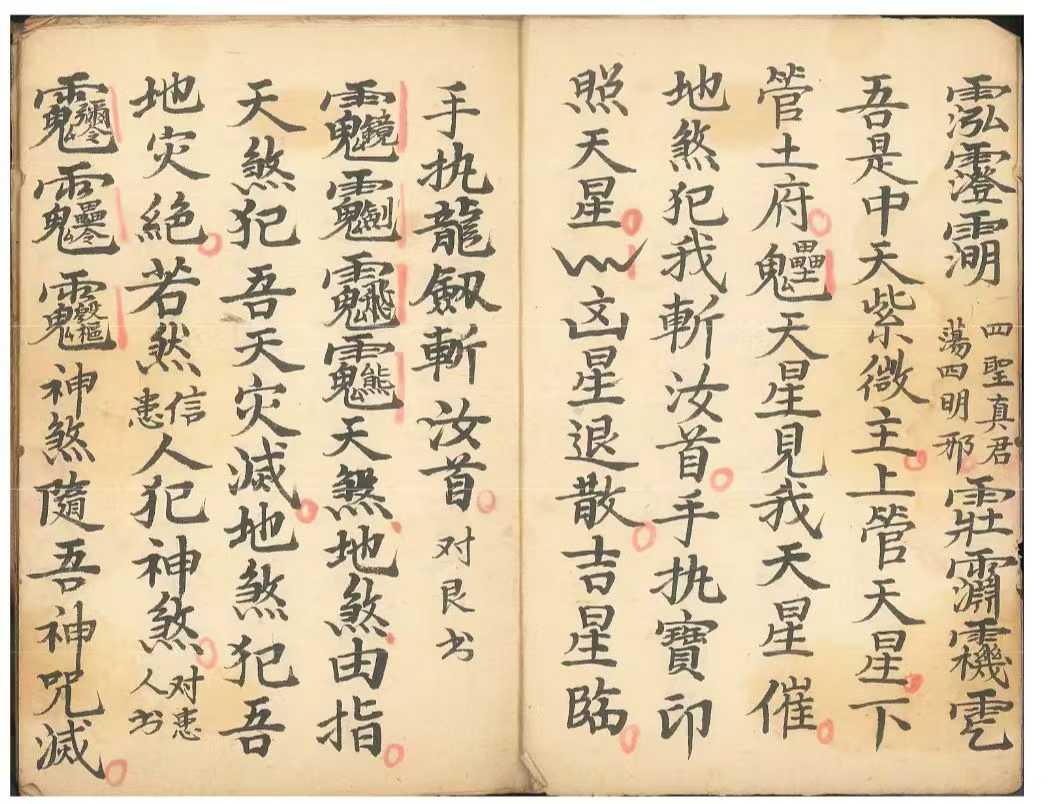 霐
四聖真君
蕩四明邪
吾是中天紫微主上管天星下
管土府天星見我天星催
地煞犯我斬汝首手执寶印
照天星凶星退散吉星臨
手执龍劔斬汝首对艮书
天煞地煞由指
天煞犯吾天灾滅地煞犯吾
地灾絕若然信患人犯神煞对患人书
神煞隨吾神咒滅